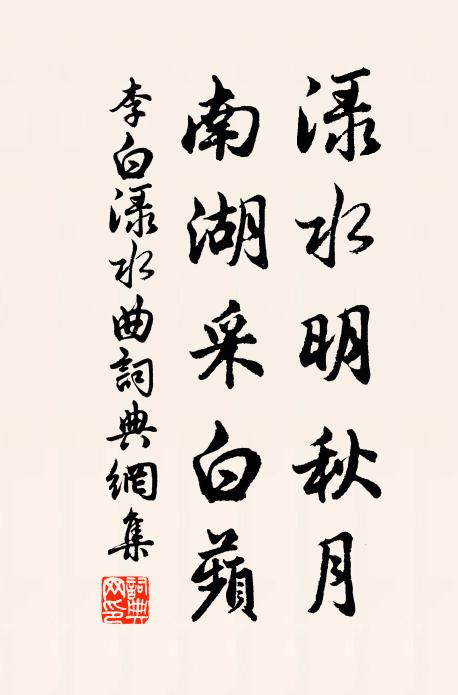 淥水明秋月
南湖采白蘋
李白淥水曲詞典網集
詞典网印